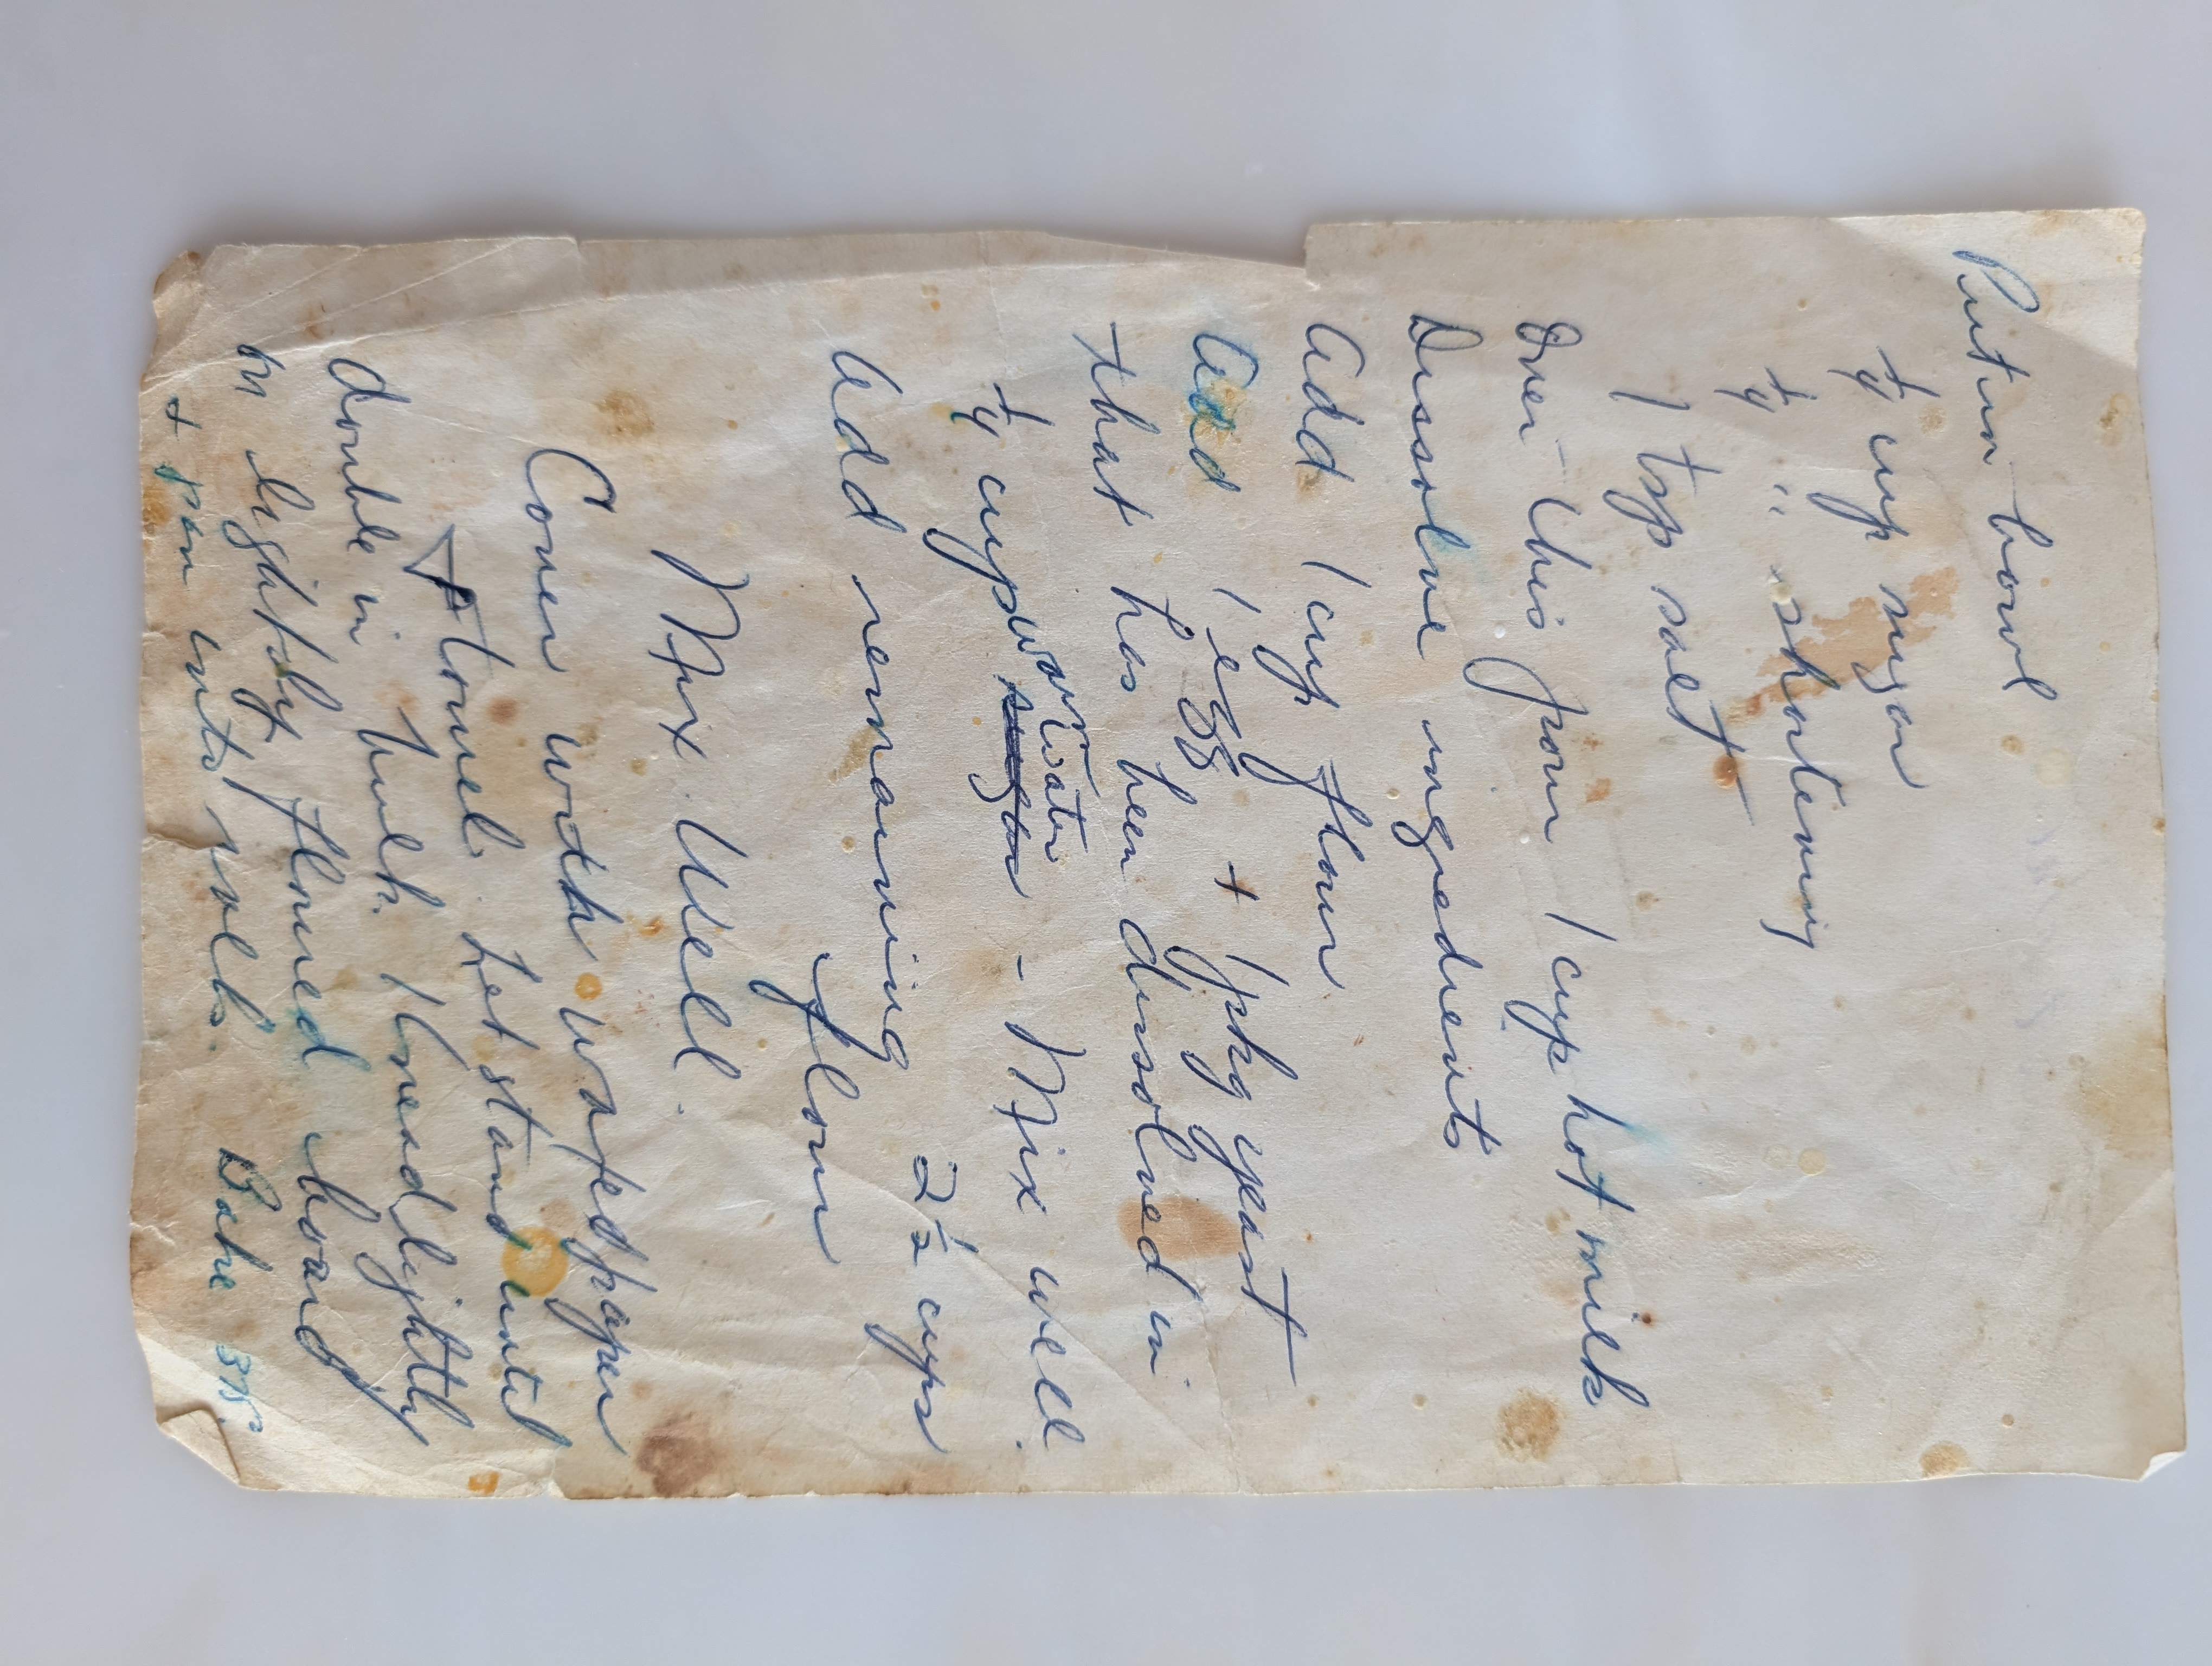 Put in bowl
1/4 cup sugar
1/4 " shortening
1 tsp salt
Over this pour 1 cup hot milk
Dissolve ingredients
Add 1 cup flour
Add 1 egg + 1 pkg yeast
that has been dissolved in
warm water
1/4 cup sugar - Mix well.
Add remaining 2 1/2 cups
flour
Mix Well.
Cover with waxed paper
+ towel. Let stand until
double in bulk. Knead lightly
on lightly floured board
+ pan into rolls. Bake 375°